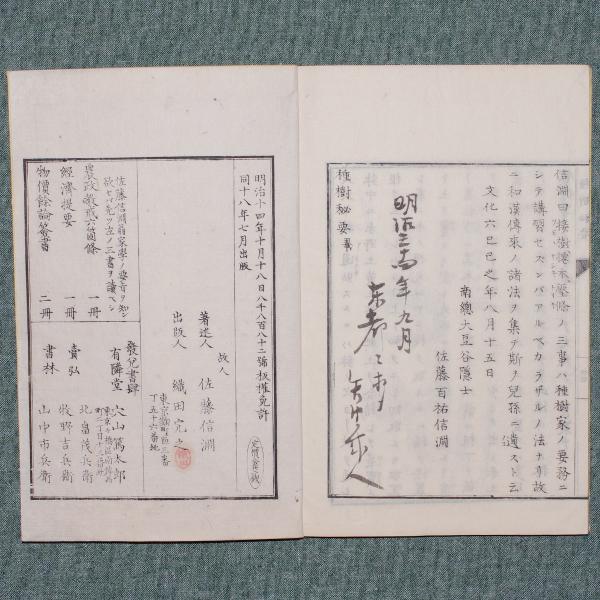 信淵曰接樹樣木壓條ノ三事ハ種樹家ノ要務ニ
シテ講習セズンバアルベカラザルノ法ナリ故
ニ和漢傳來ノ諸法ヲ集テ斯ヲ兒孫ニ遺スト云
文化六己巳之年八月十五日
南總大豆谷隱士
佐藤百祐信淵
明治三十四年九月
種樹秘要
明治十四年十月十八日八千八百八十二號板權免許
同十八年七月出版
故人
著述人 佐藤信淵
出版人 織田完之
東京麹町區三番
丁五十六番地
佐藤信淵翁家學ノ要旨ヲ知ン
欲セバ先ツ左ノ三書ヲ讀ベシ
農政徴戒六箇條 一冊
經濟提要 一冊
物價餘論簽書 二冊
發兌書肆
有隣堂 穴山篤太郎
賣弘 北畠茂兵衛
牧野吉兵衛
書林 山中市兵衛